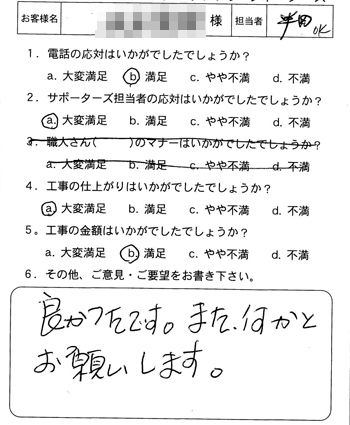 お客様名 様 担当者 半田 OK
1．電話の応対はいかがでしたでしょうか？
a. 大変満足 b. 満足 c. やや不満 d. 不満
2．サポーターズ担当者の応対はいかがでしたでしょうか？
a. 大変満足 b. 満足 c. やや不満 d. 不満
3．職人さん( )のマナーはいかがでしたでしょうか？
a. 大変満足 b. 満足 c. やや不満 d. 不満
4．工事の仕上がりはいかがでしたでしょうか？
a. 大変満足 b. 満足 c. やや不満 d. 不満
5。工事の金額はいかがでしたでしょうか？
a. 大変満足 b. 満足 c. やや不満 d. 不満
6．その他、ご意見・ご要望をお書き下さい。
良かったです。また、何かと
お願いします。